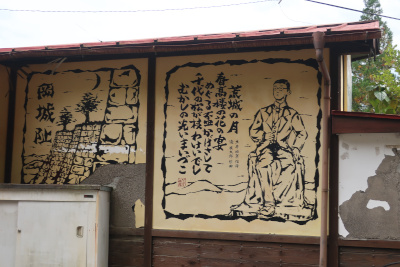 岡城趾
荒城の月
春高楼の花の宴
めぐる盃かげさして
千代の松が枝わけいでし
むかしの光いまいづこ